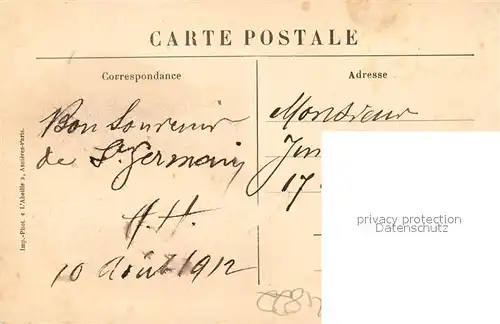 CARTE POSTALE
Correspondance
Adresse
Bon Souvenir
de St Germain
H. H.
10 Août 1912
Monsieur
17
Imp.-Phot. « L'Abeille », Asnières-Paris.
privacy protection
Datenschutz